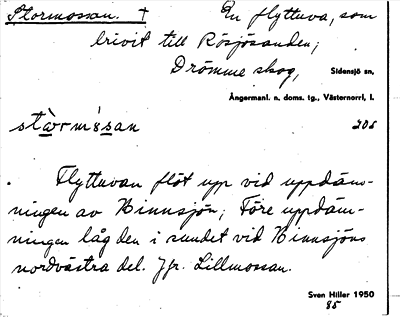 Stormossan. † En flyttuva, som
brivit till Rösjösanden;
Drömme skog, Sidensjö sn,
Ångermanl. n. doms. tg., Västernorrl, l.
stàrmʹåsan 205
Flyttuvan flöt upp vid uppdäm-
ningen av Binnsjön; Före uppdäm-
ningen låg den i sundet vid Binnsjöns
nordvästra del. Jfr. Lillmossan.
Sven Hiller 1950
85